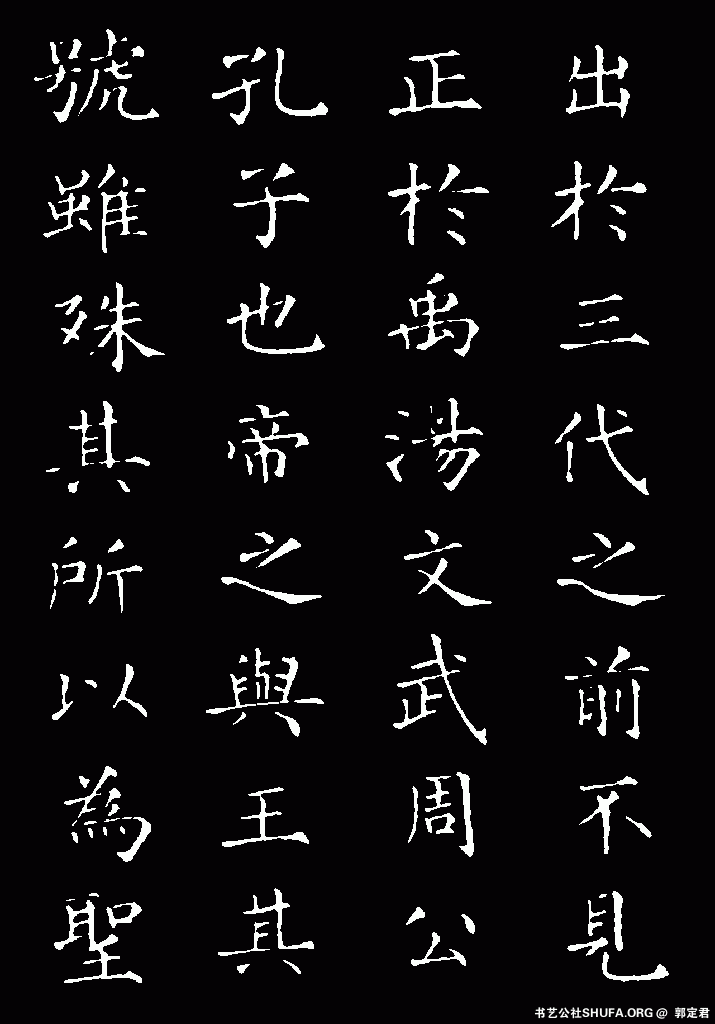 出於三代之前不見
正於禹湯文武周公
孔子也帝之與王其
號雖殊其所以為聖
书艺公社SHUFA.ORG @ 郭定君